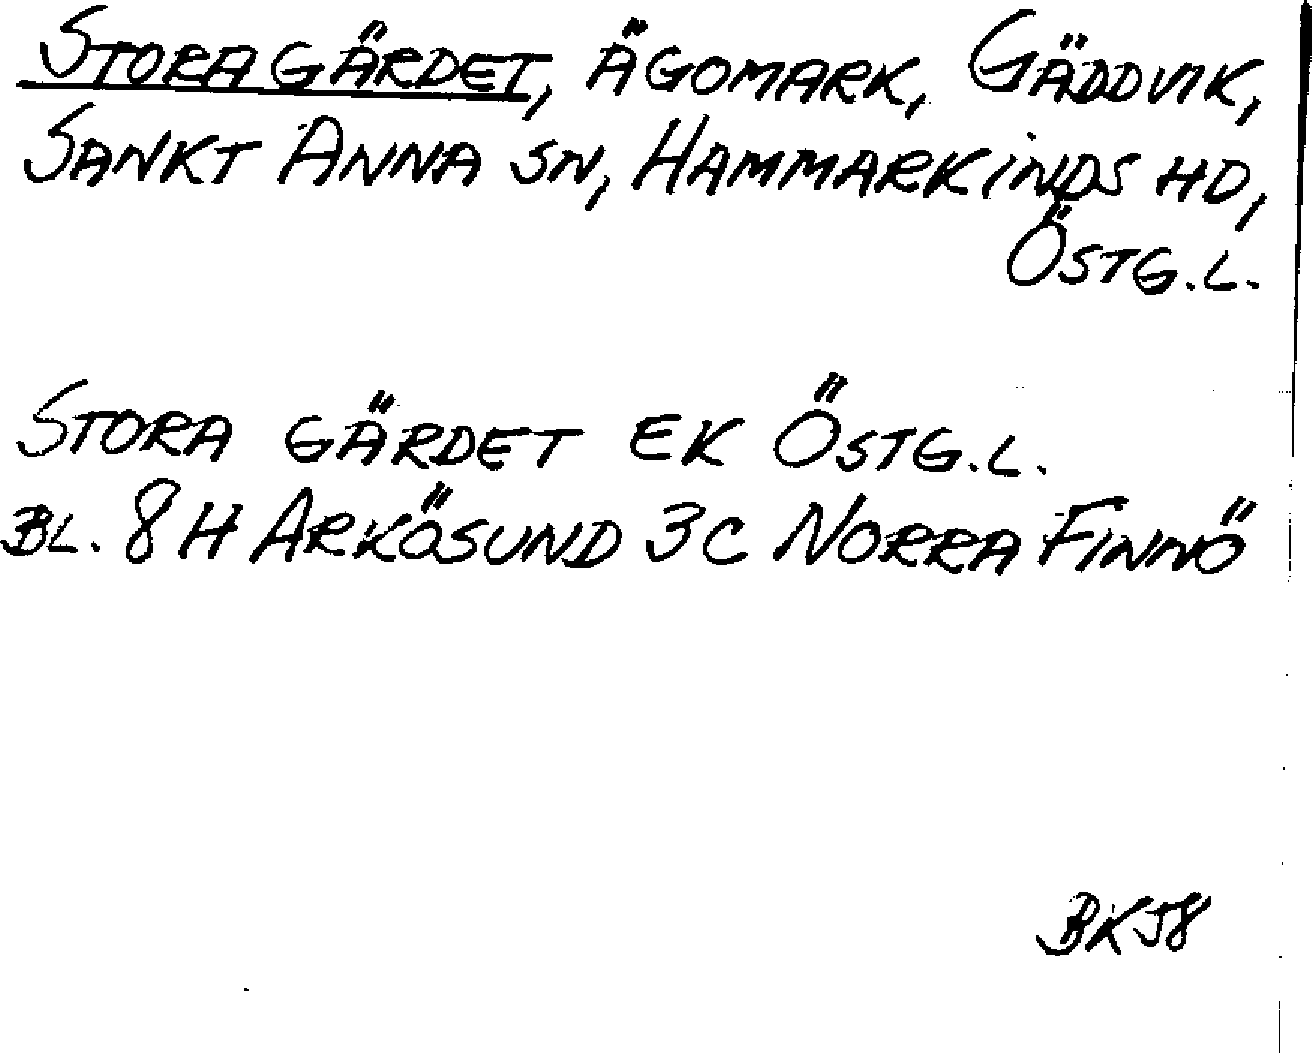 STORA GÄRDET, ÄGOMARK, GÄDDVIK,
SANKT ANNA SN, HAMMARKINDS HD,
ÖSTG.L.
STORA GÄRDET EK ÖSTG.L.
BL. 8H ARKÖSUND 3C NORRA FINNÖ
BK58